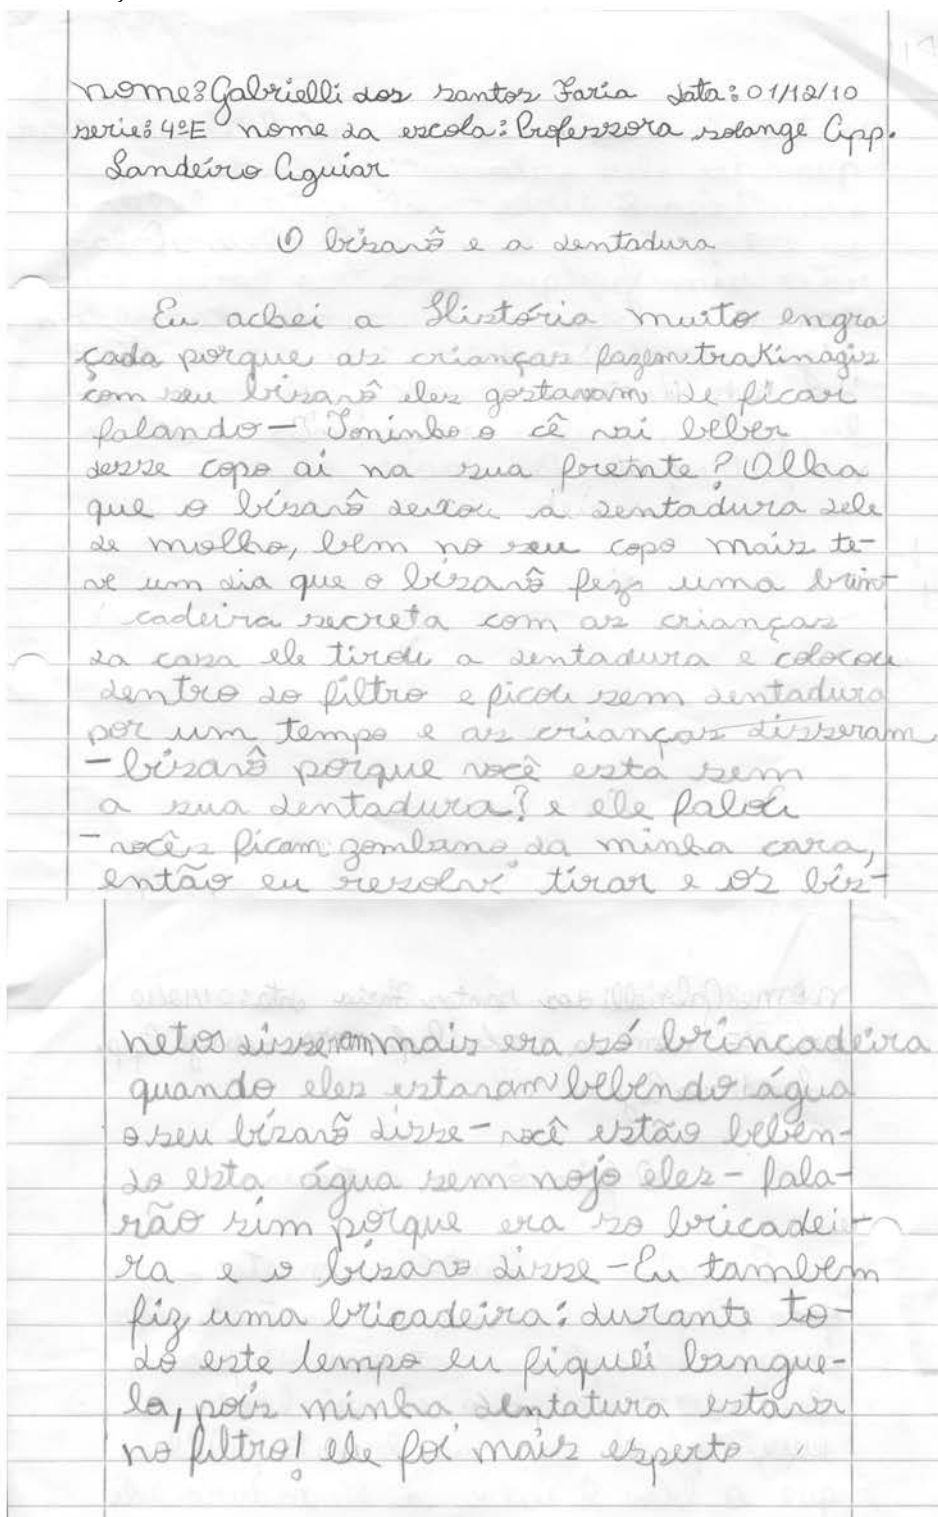 nome: Gabrielli dos santos Faria data: 01/12/10
serie: 4ºE nome da escola: Professora solange App.
Landeiro Aguiar
O bisavô e a dentadura
Eu achei a História muito engra
çada porque as crianças fazem trakinagis
com seu bisavô eles gostavam de ficar
falando - Toninho o cê vai beber
desse copo ai na sua frente? Olha
que o bisavô deixou a dentadura dele
de molho, bem no seu copo mais te-
ve um dia que o bisavô fez uma brin-
cadeira secreta com as crianças
da casa ele tirou a dentadura e colocou
dentro do filtro e ficou sem dentadura
por um tempo e as crianças disseram
- bisavô porque você está sem
a sua dentadura? e ele falou
- vocês ficam zombano da minha cara,
então eu resolvi tirar e os bis-
netos disseram mais era só brincadeira
quando eles estavam bebendo água
o seu bisavô disse - você estão beben-
do esta água sem nojo eles - fala-
rão sim porque era so bricadei-
ra e o bisavo disse - Eu tambem
fiz uma bricadeira: durante to-
do este tempo eu fiquei bangue-
la, pois minha dentatura estava
no filtro! ele foi mais esperto